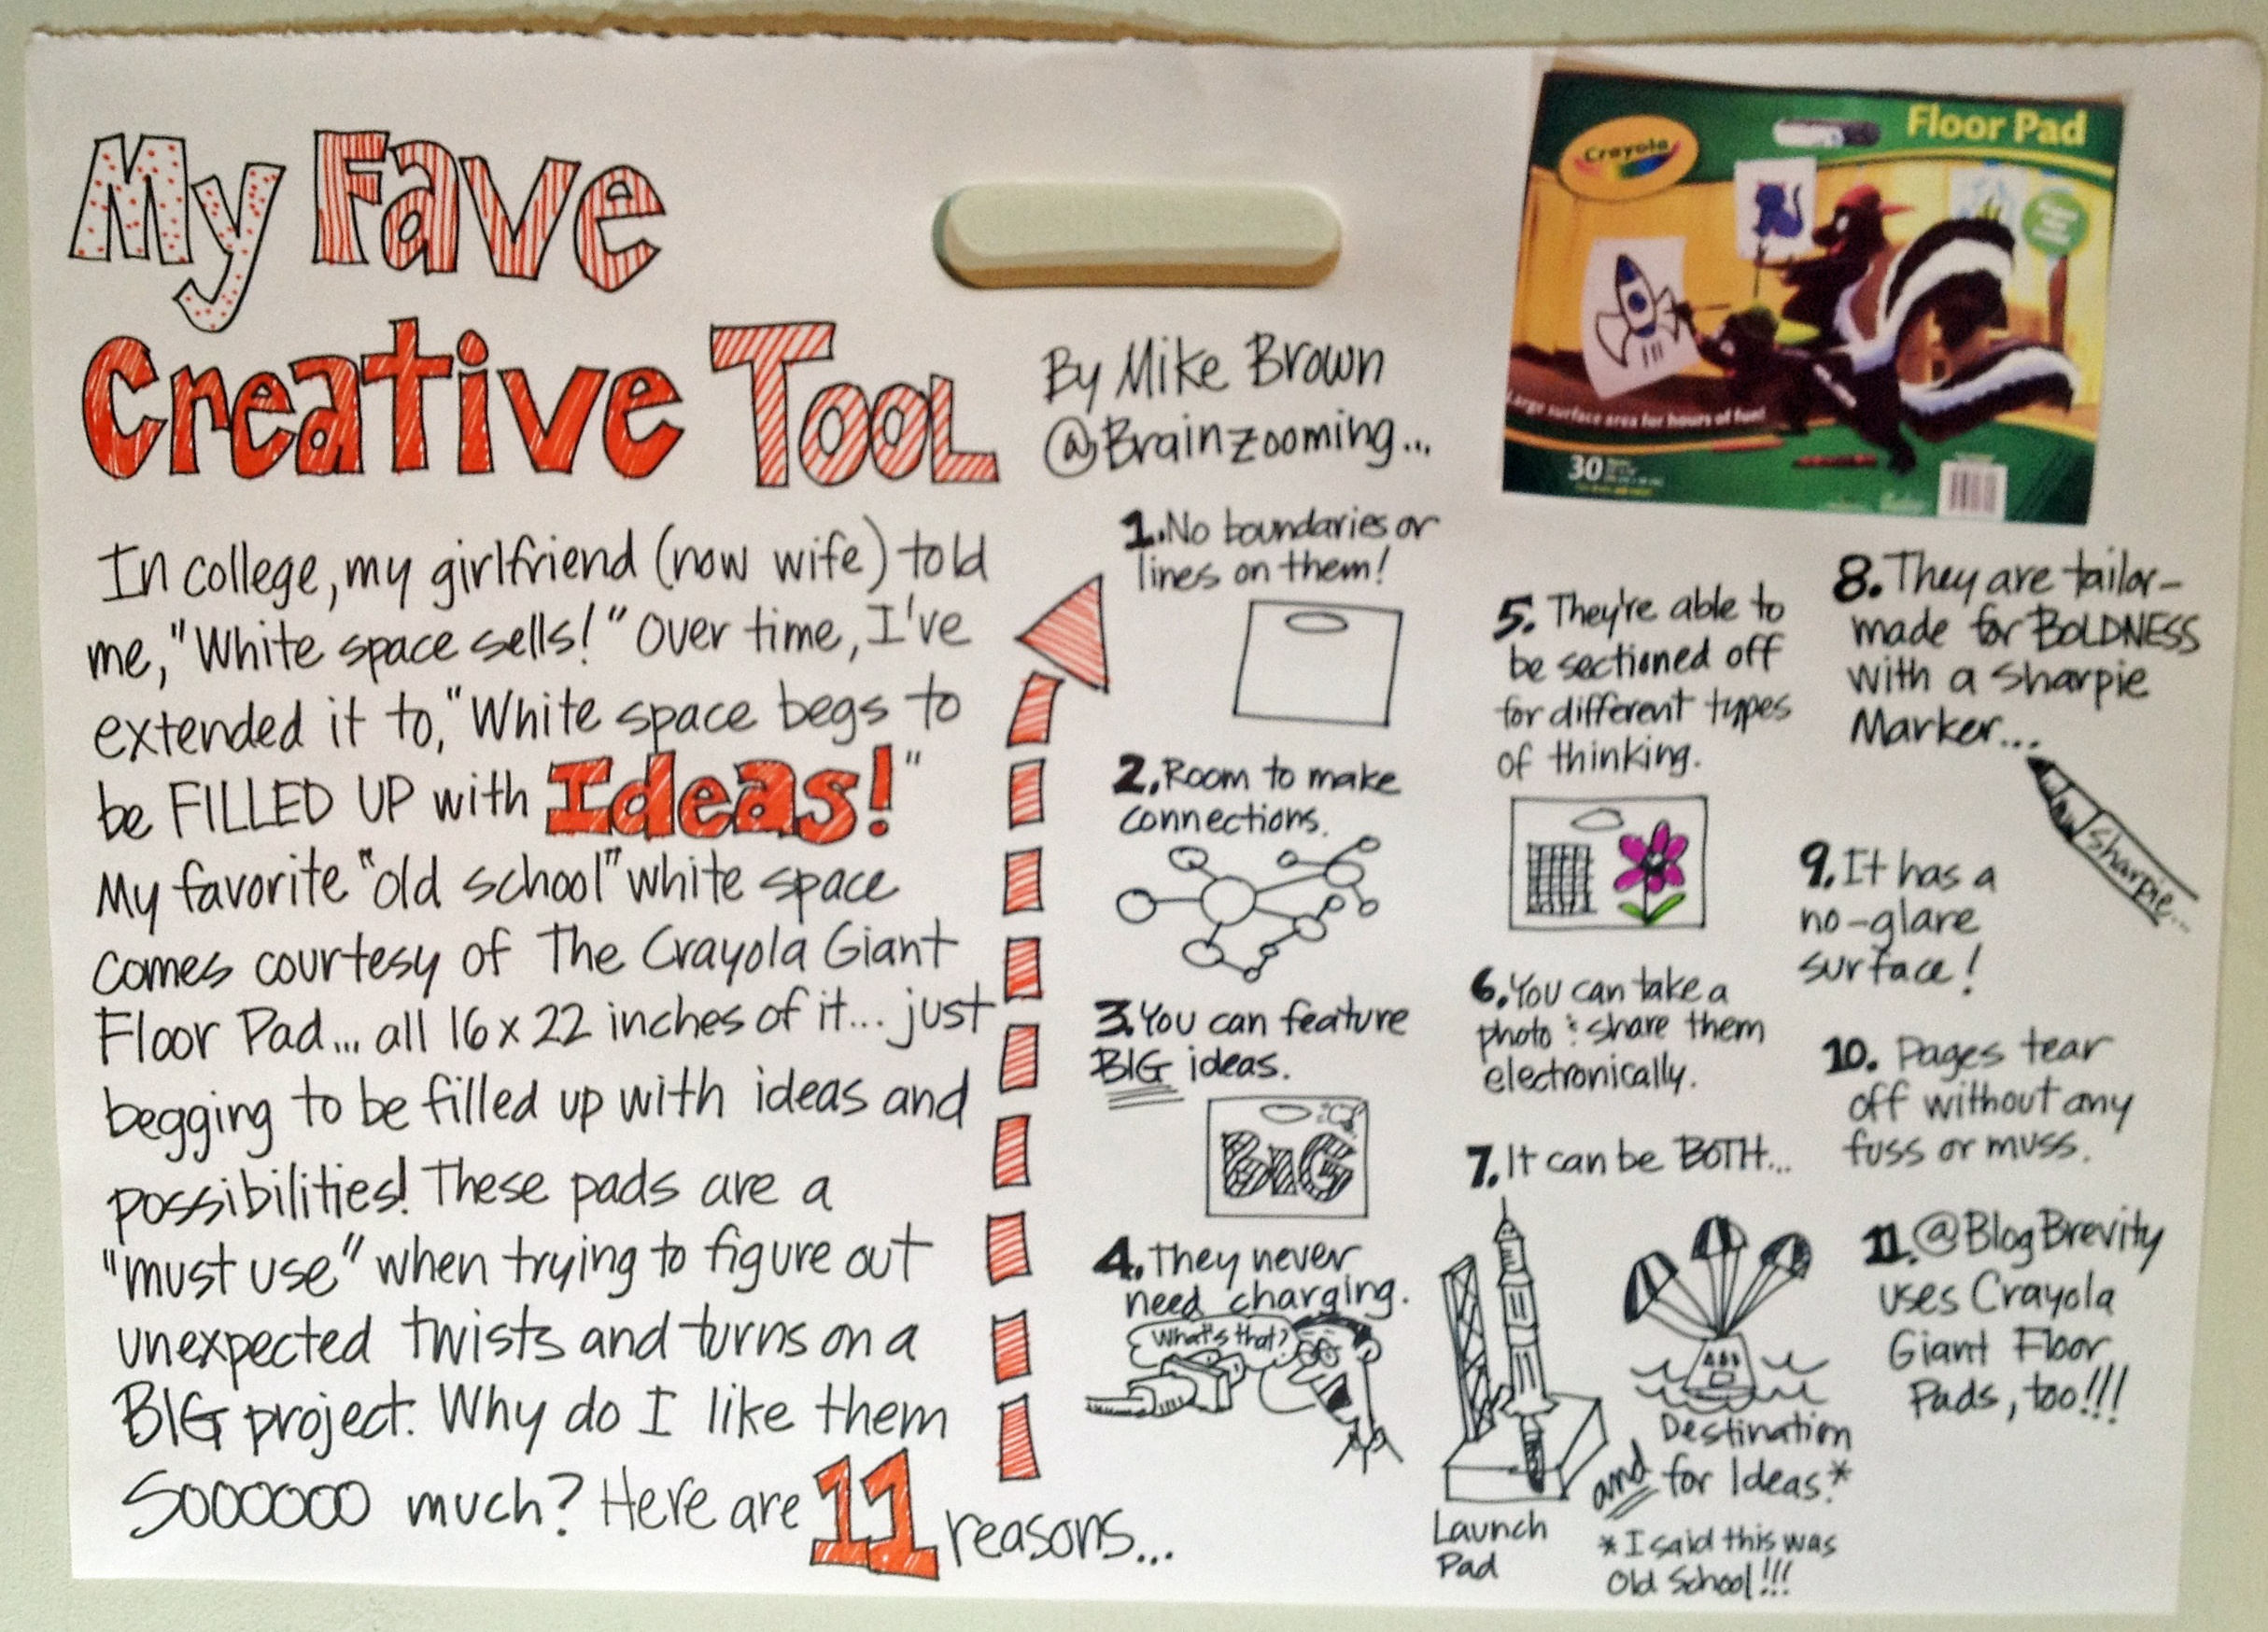 My Fave
Creative Tool
By Mike Brown
@Brainzooming...
In college, my girlfriend (now wife) told
me, "White space sells!" Over time, I've
extended it to, "White space begs to
be FILLED UP with Ideas!"
My favorite "old school" white space
comes courtesy of The Crayola Giant
Floor Pad... all 16 x 22 inches of it... just
begging to be filled up with ideas and
possibilities! These pads are a
"must use" when trying to figure out
unexpected twists and turns on a
BIG project. Why do I like them
Sooooooo much? Here are 11 reasons...
1. No boundaries or
lines on them!
2. Room to make
connections.
3. You can feature
BIG ideas.
BIG
4. They never
need charging.
What's that?
Crayola
Floor Pad
Large surface area for hours of fun!
30
5. They're able to
be sectioned off
for different types
of thinking.
6. You can take a
photo & share them
electronically.
7. It can be BOTH...
Launch
Pad
and
Destination
for Ideas.*
*I said this was
Old School!!!
8. They are tailor-
made for BOLDNESS
with a Sharpie
Marker...
Sharpie...
9. It has a
no-glare
surface!
10. Pages tear
off without any
fuss or muss.
11. @BlogBrevity
uses Crayola
Giant Floor
Pads, too!!!